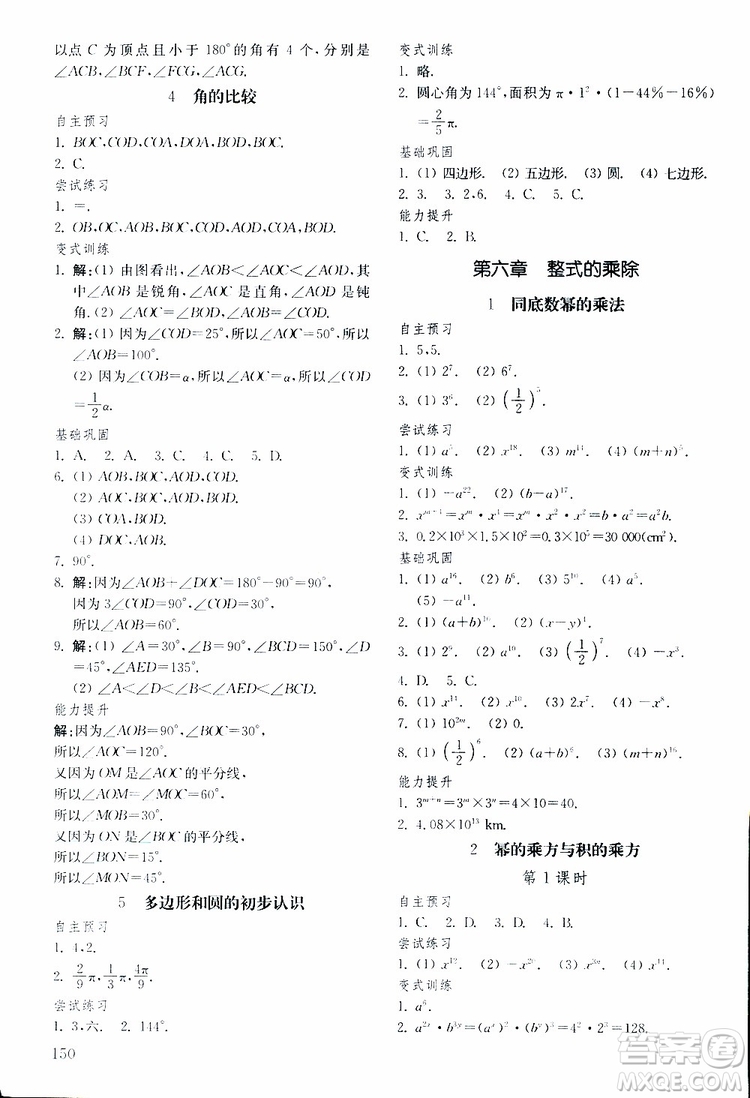 以点 C 为顶点且小于 180°的角有 4 个,分别是
∠ACB,∠BCF,∠FCG,∠ACG.
4 角的比较
自主预习
1. BOC,COD,COA,DOA,BOD,BOC.
2. C.
尝试练习
1. =.
2. OB,OC,AOB,BOC,COD,AOD,COA,BOD.
变式训练
1. 解:(1) 由图看出,∠AOB<∠AOC<∠AOD,其
中∠AOB 是锐角,∠AOC 是直角,∠AOD 是钝
角.(2) ∠AOC=∠AOB+∠BOC.
2. 解:(1) 因为∠COB=25°,所以∠AOC=50°.所以
∠AOB=100°.
(2) 因为∠COB=α,所以∠AOC=α,所以∠COD
=1/2α.
基础巩固
1. A. 2. A. 3. C. 4. C. 5. D.
6. (1) AOB,BOC,AOD,COD.
(2) AOC,BOC,AOD,BOD.
(3) COA,BOD.
(4) DOC,AOB.
7. 90°.
8. 解:因为∠AOB+∠DOC=180°-90°=90°,
因为 3∠COD=90°,∠COD=30°,
所以∠AOB=60°.
9. 解:(1) ∠A=30°,∠B=90°,∠BCD=150°,∠D
=45°,∠AED=135°.
(2) ∠A<∠D<∠B<∠AED<∠BCD.
能力提升
解:因为∠AOB=90°,∠BOC=30°,
所以∠AOC=120°.
又因为 OM 是∠AOC 的平分线,
所以∠AOM=∠MOC=60°,
所以∠MOB=30°.
又因为 ON 是∠BOC 的平分线,
所以∠BON=15°,
所以∠MON=45°.
5 多边形和圆的初步认识
自主预习
1. 4,2.
2. 2/9π,1/3π,4π/9.
尝试练习
1. 3,六. 2. 144°.
150
变式训练
1. 略.
2. 圆心角为 144°,面积为 π·1²·(1-44%-16%)
=2/5π.
基础巩固
1. (1) 四边形. (2) 五边形. (3) 圆. (4) 七边形.
2. 3. 3. 2,6. 4. C. 5. C.
能力提升
1. C. 2. B.
第六章 整式的乘除
1 同底数幂的乘法
自主预习
1. 5,5.
2. (1) 2⁷. (2) 6⁷.
3. (1) 3⁶. (2) (1/2)⁵.
尝试练习
1. (1) a⁵. (2) x¹⁸. (3) x³ᵐ⁺¹. (4) (m+n)⁵.
变式训练
1. (1) -a²². (2) (b-a)¹⁷.
2. xᵐ⁺¹=xᵐ·x¹=xᵐ·x²·x²=b·a²=a²b.
3. 0.2×10²×1.5×10²=0.3×10⁵=30 000(cm²)
基础巩固
1. (1) a¹⁶. (2) b⁶. (3) 10⁶. (4) a⁵.
(5) -a¹¹.
2. (1) (a+b)¹⁰. (2) (x-y)⁴.
3. (1) x¹⁵. (2) (1/2)⁵. (3) (1/2)⁷.
4. D. 5. C.
6. (1) x¹¹. (2) x¹⁴. (3) 2x⁷. (4) x¹⁵.
7. (1) 10²ᵐ. (2) 0.
8. (1) (1/2)⁶. (2) (a+b)⁶. (3) (m+n)¹⁶.
能力提升
1. 3ᵐ⁺ⁿ=3ᵐ×3ⁿ=4×5=20.
2. 4.08×10¹³ km.
2 幂的乘方与积的乘方
第 1 课时
自主预习
1. C. 2. D. 3. D. 4. B.
尝试练习
1. (1) x¹². (2) -x¹⁰. (3) x⁸. (4) x⁹.
变式训练
1. a⁶.
2. a²ˣ·b³ʸ=(aˣ)²·(bʸ)³=4²·2³=128.
答案圈